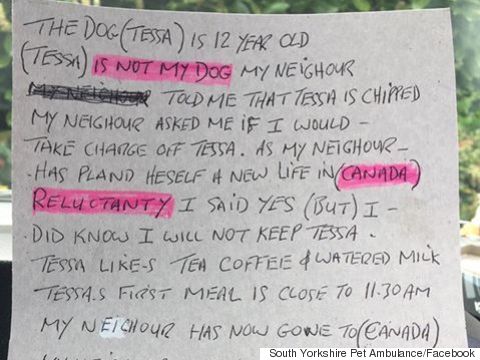 THE DOG (TESSA) IS 12 YEAR OLD
(TESSA) IS NOT MY DOG MY NEIGHOUR
MY NEIGHOUR TOLD ME THAT TESSA IS CHIPPED
MY NEIGHOUR ASKED ME IF I WOULD -
TAKE CHARGE OFF TESSA. AS MY NEIGHOUR -
- HAS PLAND HESELF A NEW LIFE IN (CANADA)
RELUCTANTY I SAID YES (BUT) I -
- DID KNOW I WILL NOT KEEP TESSA.
TESSA LIKE-S TEA COFFEE & WATERED MILK
TESSA.S FIRST MEAL IS CLOSE TO 11.30 AM
MY NEIGHOUR HAS NOW GONE TO (CANADA)
South Yorkshire Pet Ambulance/Facebook